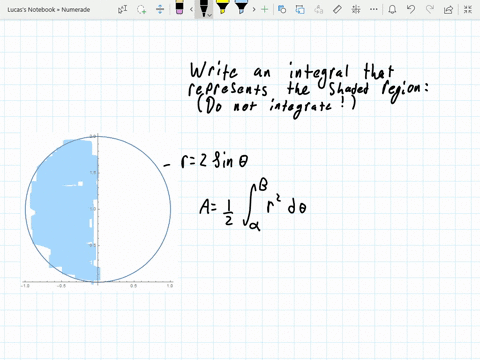 Lucas's Notebook » Numerade
Write an integral that
represents the shaded region:
(Do not integrate!)
r=2 sin θ
A= 1/2 ∫_α^β r² dθ
1.0
-1.0 -0.5 0.5 1.0